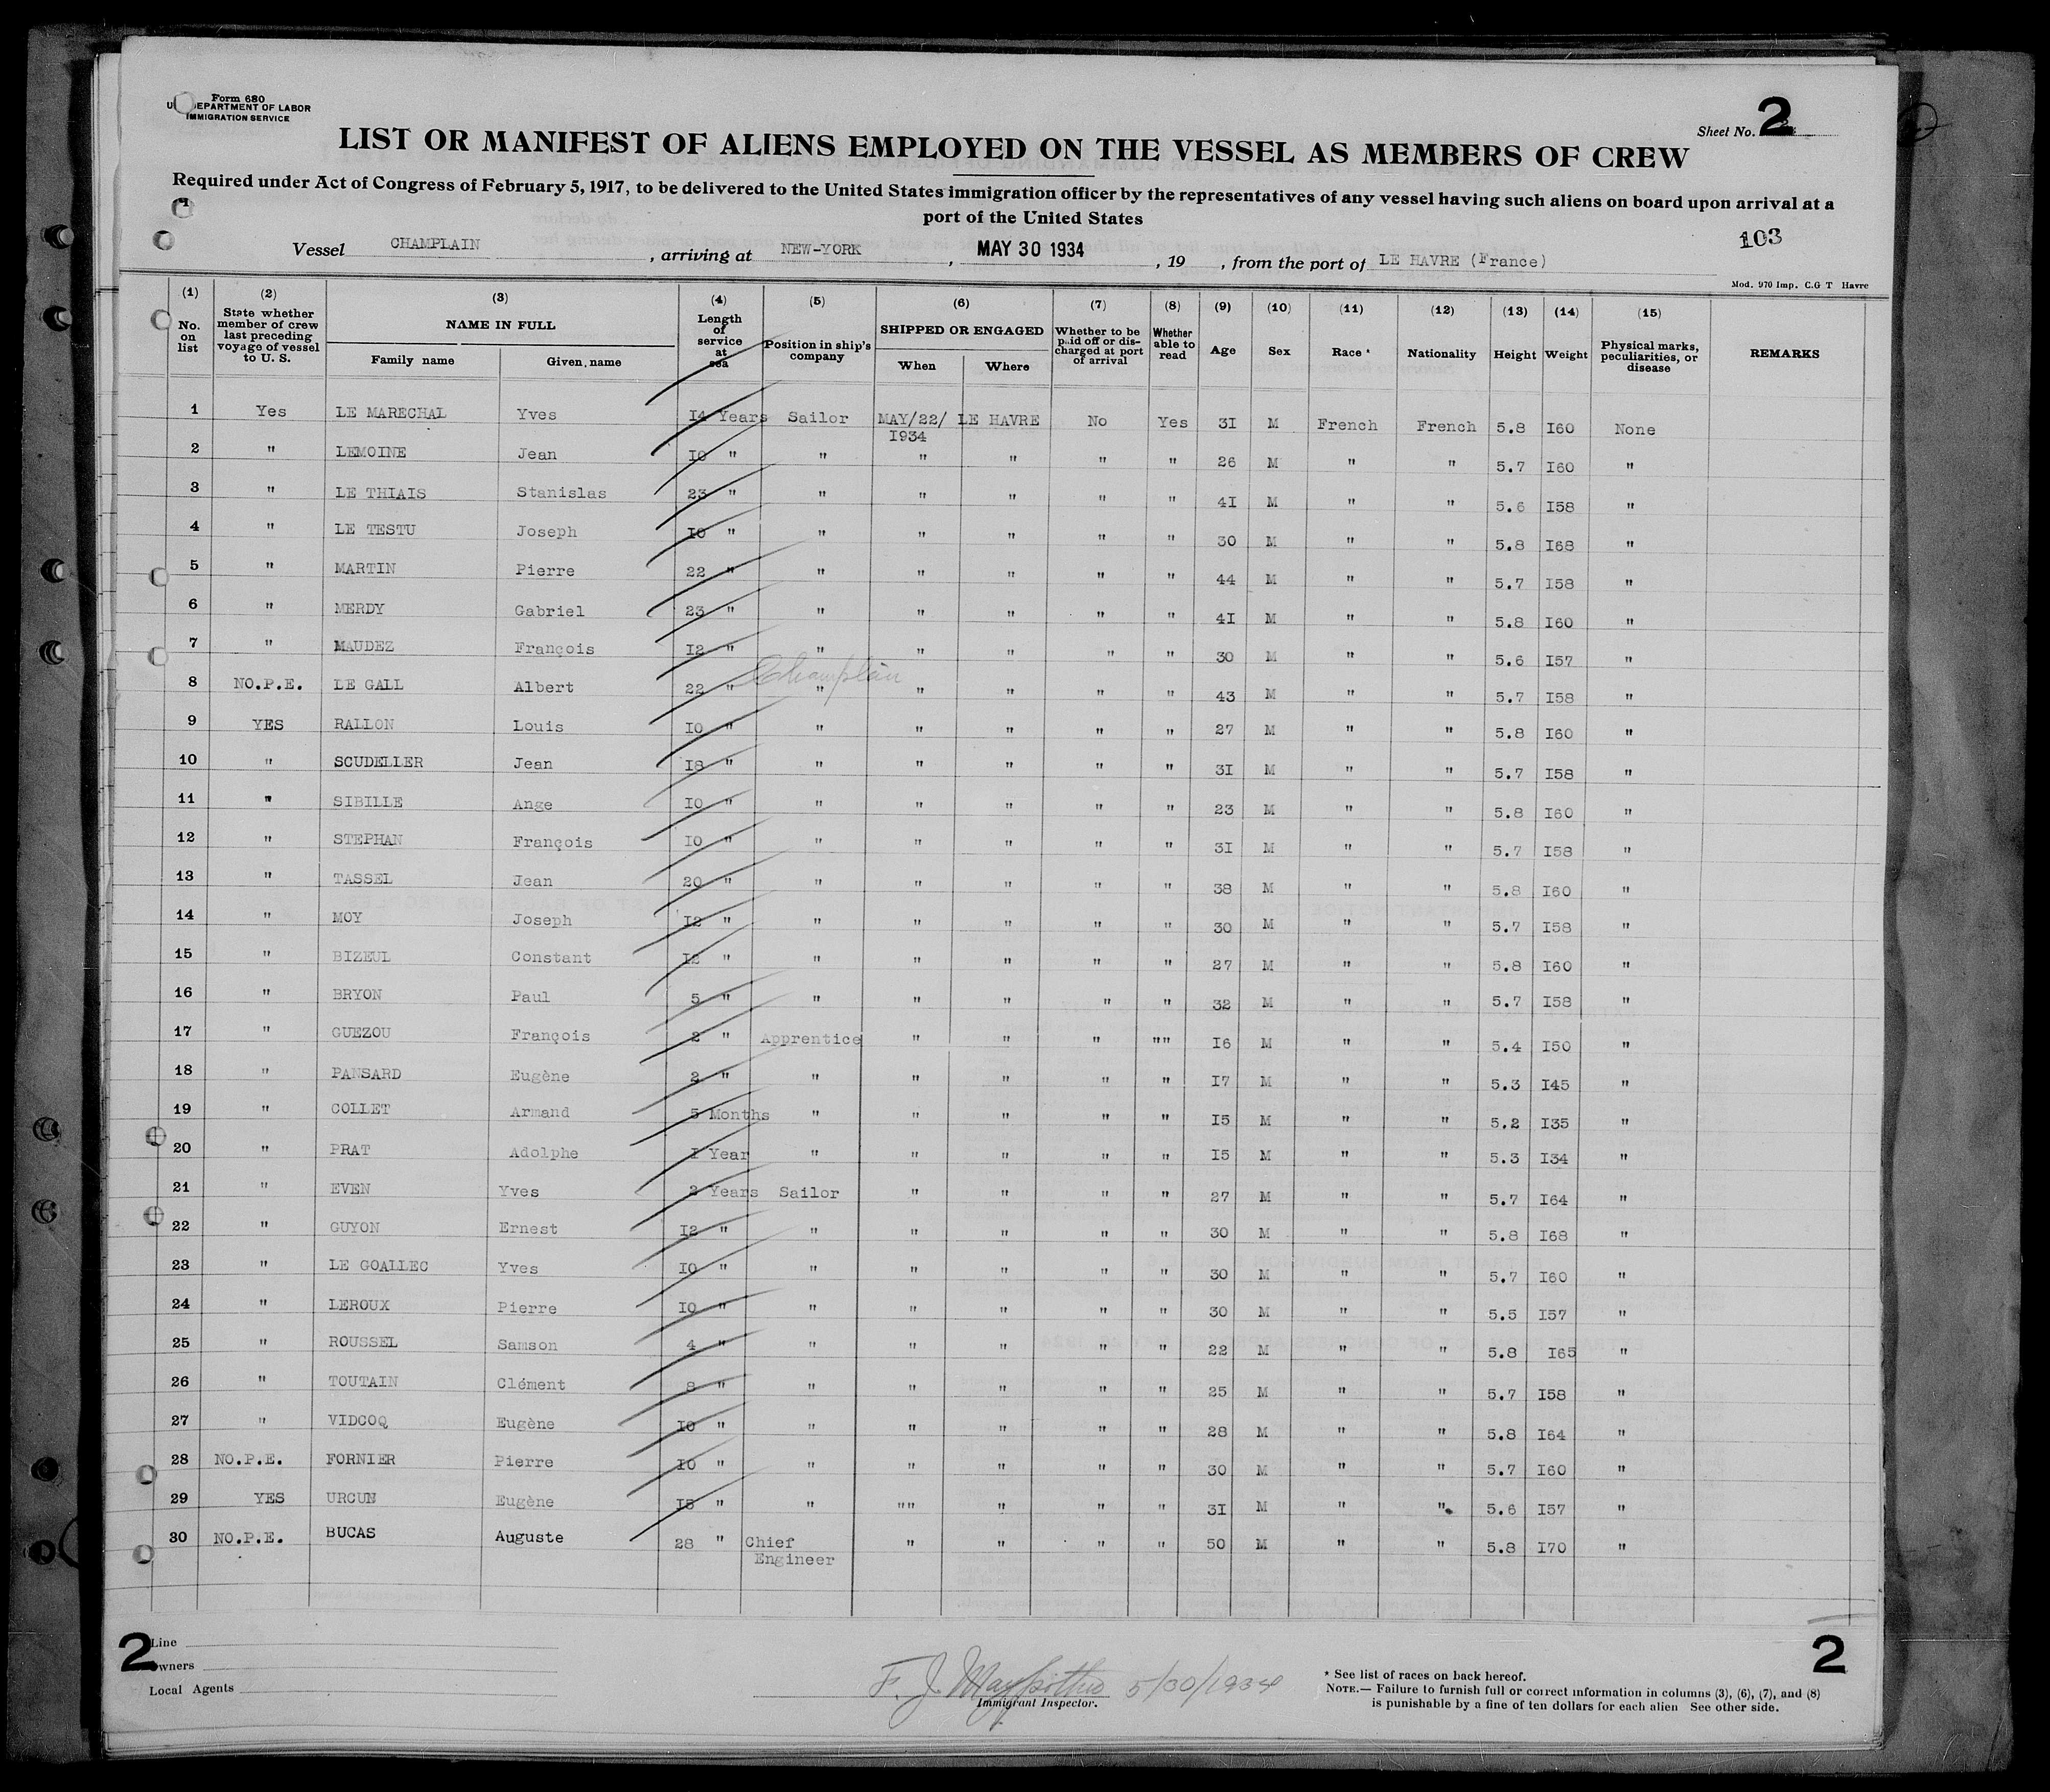 Form 680
DEPARTMENT OF LABOR
IMMIGRATION SERVICE
Sheet No. 2
LIST OR MANIFEST OF ALIENS EMPLOYED ON THE VESSEL AS MEMBERS OF CREW
Required under Act of Congress of February 5, 1917, to be delivered to the United States immigration officer by the representatives of any vessel having such aliens on board upon arrival at a
port of the United States
103
Vessel CHAMPLAIN , arriving at NEW-YORK , MAY 30 1934 , 19 , from the port of LE HAVRE (France)
Mod. 970 Imp. C.G T Havre
(1) No. on list (2) State whether member of crew last preceding voyage of vessel to U. S. (3) NAME IN FULL Family name Given name (4) Length of service at sea (5) Position in ship's company (6) SHIPPED OR ENGAGED When Where (7) Whether to be paid off or discharged at port of arrival (8) Whether able to read (9) Age (10) Sex (11) Race * (12) Nationality (13) Height (14) Weight (15) Physical marks, peculiarities, or disease REMARKS
1 Yes LE MARECHAL Yves I4 Years Sailor MAY/22/ I934 LE HAVRE No Yes 3I M French French 5.8 I60 None
2 " LEMOINE Jean I0 " " " " " " 26 M " " 5.7 I60 "
3 " LE THIAIS Stanislas 23 " " " " " " 4I M " " 5.6 I58 "
4 " LE TESTU Joseph I0 " " " " " " 30 M " " 5.8 I68 "
5 " MARTIN Pierre 22 " " " " " " 44 M " " 5.7 I58 "
6 " MERDY Gabriel 23 " " " " " " 4I M " " 5.8 I60 "
7 " MAUDEZ François I2 " " " " " " 30 M " " 5.6 I57 "
Champlain
8 NO.P.E. LE GALL Albert 22 " " " " " " 43 M " " 5.7 I58 "
9 YES RALLON Louis I0 " " " " " " 27 M " " 5.8 I60 "
10 " SCUDELLER Jean I8 " " " " " " 3I M " " 5.7 I58 "
11 " SIBILLE Ange I0 " " " " " " 23 M " " 5.8 I60 "
12 " STEPHAN François I0 " " " " " " 3I M " " 5.7 I58 "
13 " TASSEL Jean 20 " " " " " " 38 M " " 5.8 I60 "
14 " MOY Joseph I2 " " " " " " 30 M " " 5.7 I58 "
15 " BIZEUL Constant I2 " " " " " " 27 M " " 5.8 I60 "
16 " BRYON Paul 5 " " " " " " 32 M " " 5.7 I58 "
17 " GUEZOU François 2 " Apprentice " " " "" I6 M " " 5.4 I50 "
18 " PANSARD Eugène 2 " " " " " " I7 M " " 5.3 I45 "
19 " COLLET Armand 5 Months " " " " " I5 M " " 5.2 I35 "
20 " PRAT Adolphe I Year " " " " " I5 M " " 5.3 I34 "
21 " EVEN Yves 2 Years Sailor " " " " 27 M " " 5.7 I64 "
22 " GUYON Ernest I2 " " " " " " 30 M " " 5.8 I68 "
23 " LE GOALLEC Yves I0 " " " " " " 30 M " " 5.7 I60 "
24 " LEROUX Pierre I0 " " " " " " 30 M " " 5.5 I57 "
25 " ROUSSEL Samson 4 " " " " " " 22 M " " 5.8 I65 "
26 " TOUTAIN Clément 8 " " " " " " 25 M " " 5.7 I58 "
27 " VIDCOQ Eugène I0 " " " " " " 28 M " " 5.8 I64 "
28 NO.P.E. FORNIER Pierre I0 " " " " " " 30 M " " 5.7 I60 "
29 YES URCUN Eugène I5 " " "" " " " 3I M " " 5.6 I57 "
30 NO.P.E. BUCAS Auguste 28 " Chief Engineer " " " " 50 M " " 5.8 I70 "
2 Line
Owners
Local Agents
F. J. 5/30/1934
Immigrant Inspector.
* See list of races on back hereof.
NOTE.— Failure to furnish full or correct information in columns (3), (6), (7), and (8)
is punishable by a fine of ten dollars for each alien See other side.
2